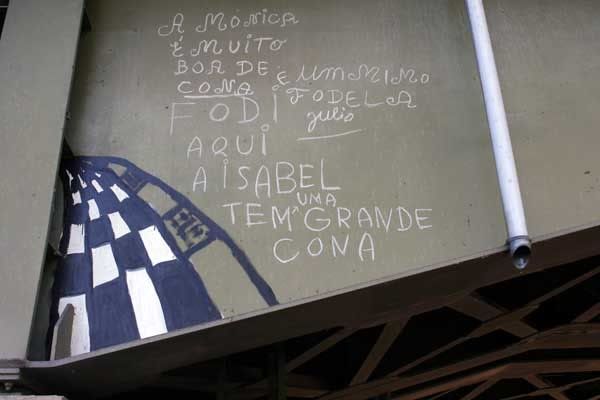 A MÓNICA
É MUITO
BOA DE
CONA
É UM MIMO
FODELA
Julio
FODI
AQUI
A ISABEL
TEM ^UMA GRANDE
CONA